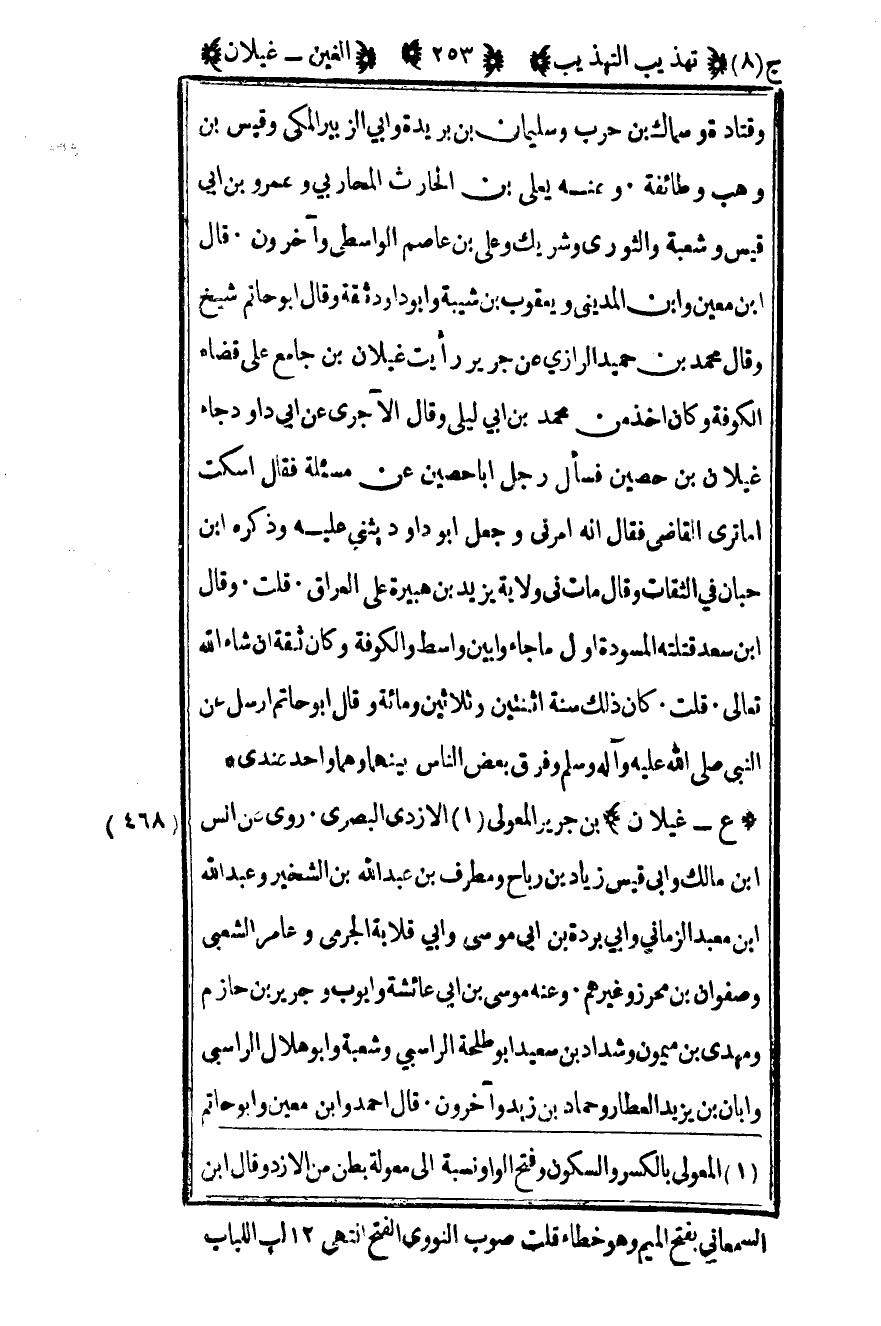 ج(٨) ﴿ تهذيب التهذيب ﴾ ﴿ ٢٥٣ ﴾ ﴿ الغين ــ غيلان ﴾
وقتادة وسماك بن حرب وسليمان بن بريدة وابي الزبير المكي وقيس بن
وهب وطائفة . وعنه يعلى بن الحارث المحاربي وعمرو بن ابي
قيس وشعبة والثورى وشريك وعلي بن عاصم الواسطى وآخرون . قال
ابن معين وابن المدينى ويعقوب بن شيبة وابوداود ثقة وقال ابوحاتم شيخ
وقال محمد بن حميد الرازي عن جرير رأيت غيلان بن جامع على قضاء
الكوفة وكان اخذ من محمد بن ابي ليلى وقال الآجرى عن ابي داود جاء
غيلان بن حصين فسأل رجل اباحصين عن مسئلة فقال اسكت
اماترى القاضى فقال انه امرنى وجعل ابو داود يثني عليه وذكره ابن
حبان في الثقات وقال مات فى ولاية يزيد بن هبيرة على العراق . قلت . وقال
ابن سعد قتلته المسودة اول ماجاءوابين واسط والكوفة وكان ثقة ان شاء الله
تعالى . قلت . كان ذلك سنة اثنتين وثلاثين ومائة وقال ابوحاتم ارسل عن
النبي صلى الله عليه وآله وسلم وفرق بعض الناس بينهما وهما واحد عندى *
﴿ ع ــ غيلان ﴾ بن جرير المعولى (١) الازدى البصرى . روى عن انس (٤٦٨)
ابن مالك وابي قيس زياد بن رباح ومطرف بن عبدالله بن الشخير وعبدالله
ابن معبد الزماني وابي بردة بن ابي موسى وابي قلابة الجرمى وعامر الشعبى
وصفوان بن محرز وغيرهم . وعنه موسى بن ابي عائشة وايوب وجرير بن حازم
ومهدى بن ميمون وشداد بن سعيد ابو طلحة الراسبي وشعبة وابو هلال الراسبى
وابان بن يزيد العطار وحماد بن زيد وآخرون . قال احمد وابن معين وابوحاتم
(١) المعولى بالكسر والسكون وفتح الواو نسبة الى معولة بطن من الازد وقال ابن
السمعاني بفتح الميم وهو خطاء قلت صوب النووى الفتح انتهى ١٢ لب اللباب